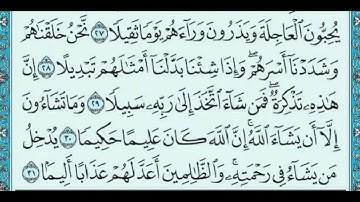 يُحِبُّونَ ٱلْعَاجِلَةَ وَيَذَرُونَ وَرَآءَهُمْ يَوْمًا ثَقِيلًا ٢٧ نَّحْنُ خَلَقْنَٰهُمْ
وَشَدَدْنَآ أَسْرَهُمْ ۖ وَإِذَا شِئْنَا بَدَّلْنَآ أَمْثَٰلَهُمْ تَبْدِيلًا ٢٨ إِنَّ
هَٰذِهِۦ تَذْكِرَةٌ ۖ فَمَن شَآءَ ٱتَّخَذَ إِلَىٰ رَبِّهِۦ سَبِيلًا ٢٩ وَمَا تَشَآءُونَ
إِلَّآ أَن يَشَآءَ ٱللَّهُ ۚ إِنَّ ٱللَّهَ كَانَ عَلِيمًا حَكِيمًا ٣٠ يُدْخِلُ
مَن يَشَآءُ فِى رَحْمَتِهِۦ ۚ وَٱلظَّٰلِمِينَ أَعَدَّ لَهُمْ عَذَابًا أَلِيمًۢا ٣١